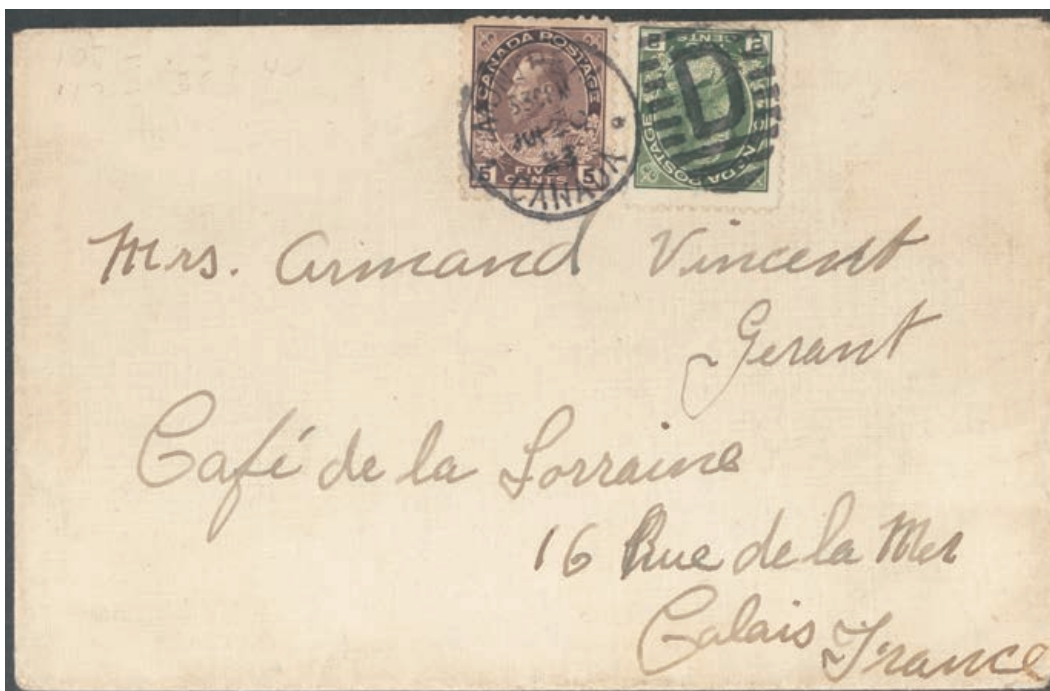 CANADA POSTAGE
5 FIVE CENTS 5
5 30 PM
JUN 20
23
CANADA
2 CENTS 2
D
Mrs. Armand Vincent
Gerant
Café de la Lorraine
16 Rue de la Mer
Calais France